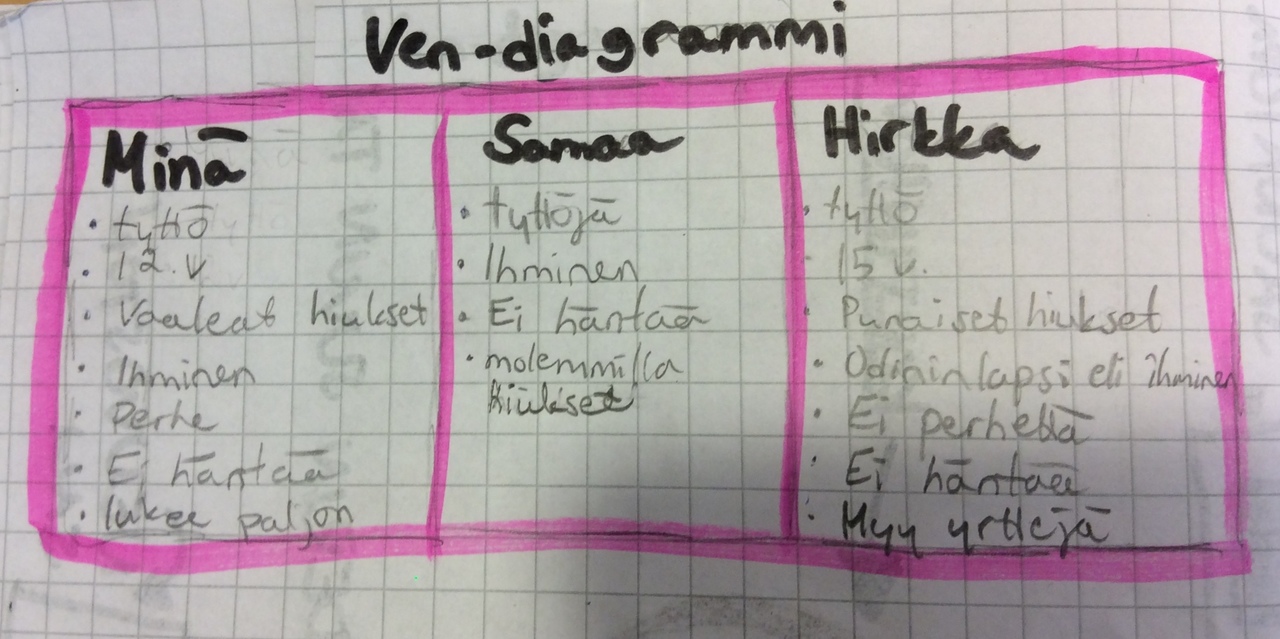 Ven-diagrammi
Minä
• tyttö
• 12.v
• Vaaleat hiukset
• Ihminen
• Perhe
• Ei häntää
• lukee paljon
Samaa
• tyttöjä
• Ihminen
• Ei häntää
• molemmilla
hiukset
Hirkka
• tyttö
• 15 v.
• Punaiset hiukset
• Odininlapsi eli ihminen
• Ei perhettä
• Ei häntää
• Myy yrttejä